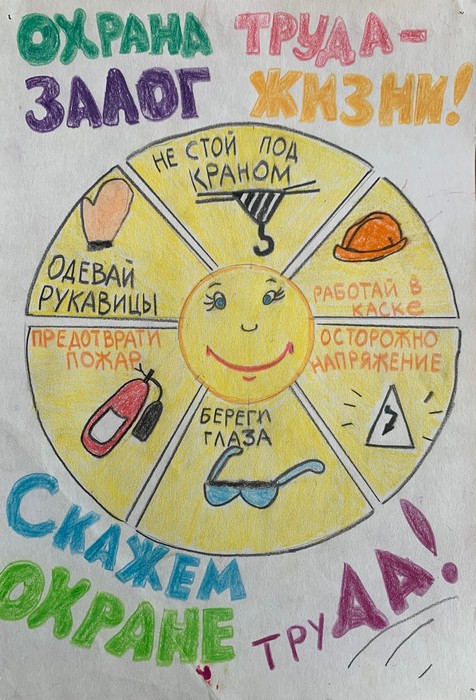 ОХРАНА ТРУДА-
ЗАЛОГ ЖИЗНИ!
НЕ СТОЙ ПОД
КРАНОМ
ОДЕВАЙ
РУКАВИЦЫ
РАБОТАЙ В
КАСКЕ
ПРЕДОТВРАТИ
ПОЖАР
ОСТОРОЖНО
НАПРЯЖЕНИЕ
БЕРЕГИ
ГЛАЗА
СКАЖЕМ
ОХРАНЕ
ТРУДА!